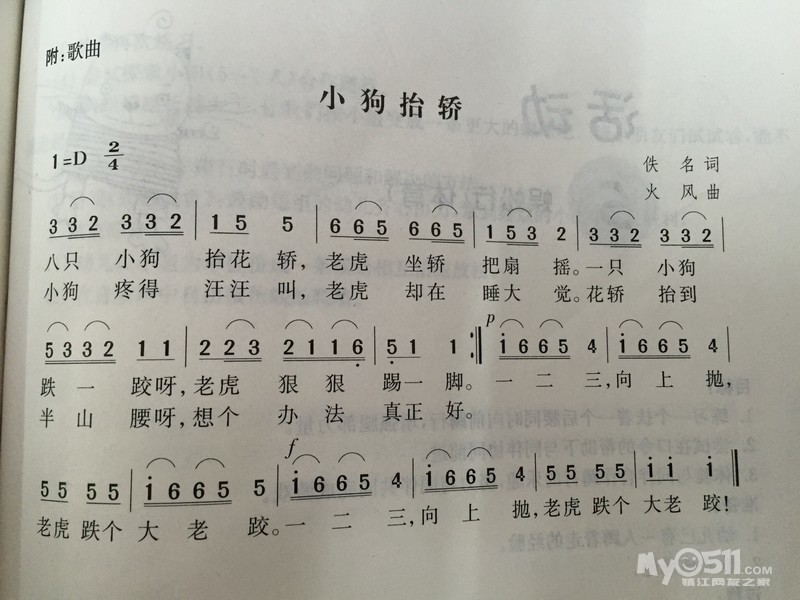 附:歌曲
小狗抬轿
1=D 2/4
佚名词
火风曲
3 3 2 3 3 2 | 1 5 5 | 6 6 5 6 6 5 | 1 5 3 2 | 3 3 2 3 3 2 |
八只 小狗 抬花 轿, 老虎 坐轿 把扇 摇。一只 小狗
小狗 疼得 汪汪 叫, 老虎 却在 睡大 觉。花轿 抬到
5 3 3 2 1 1 | 2 2 3 2 1 1 6 | 5 1 1 :‖ p i 6 6 5 4 | i 6 6 5 4 |
跌一跤呀, 老虎 狠狠 踢一脚。 一二三, 向上抛,
半山腰呀, 想个 办法 真正好。
5 5 5 5 | f i 6 6 5 5 | i 6 6 5 4 | i 6 6 5 4 | 5 5 5 5 | i i i ‖
老虎 跌个 大老跤。一二三, 向上抛, 老虎 跌个 大老跤!
My0511.com
镇江网友之家